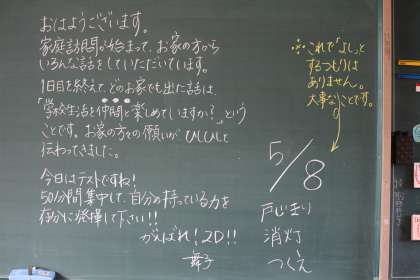 おはようございます。
家庭訪問が始まって、お家の方から
いろんな話をしていただいています。
1日目を終えて、どのお家でも出た話は、
「学校生活を仲間と楽しめていますか？」という
ことです。お家の方々の願いがひしひしと
伝わってきました。
今日はテストですね！
50分間集中して、自分の持っている力を
存分に発揮して下さい!!
がんばれ！2D!!
舞子
※これで「よし」と
するつもりは
ありません。
大事なことです。
5/8
戸じまり
消灯
つくえ